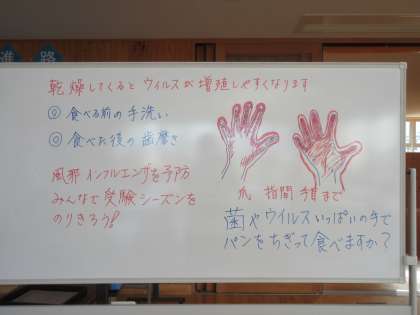 進路
乾燥してくるとウイルスが増殖しやすくなります
◎食べる前の手洗い
◎食べた後の歯磨き
風邪インフルエンザを予防
みんなで受験シーズンを
のりきろう!
爪 指間 手首まで
菌やウイルスいっぱいの手で
パンをちぎって食べますか?